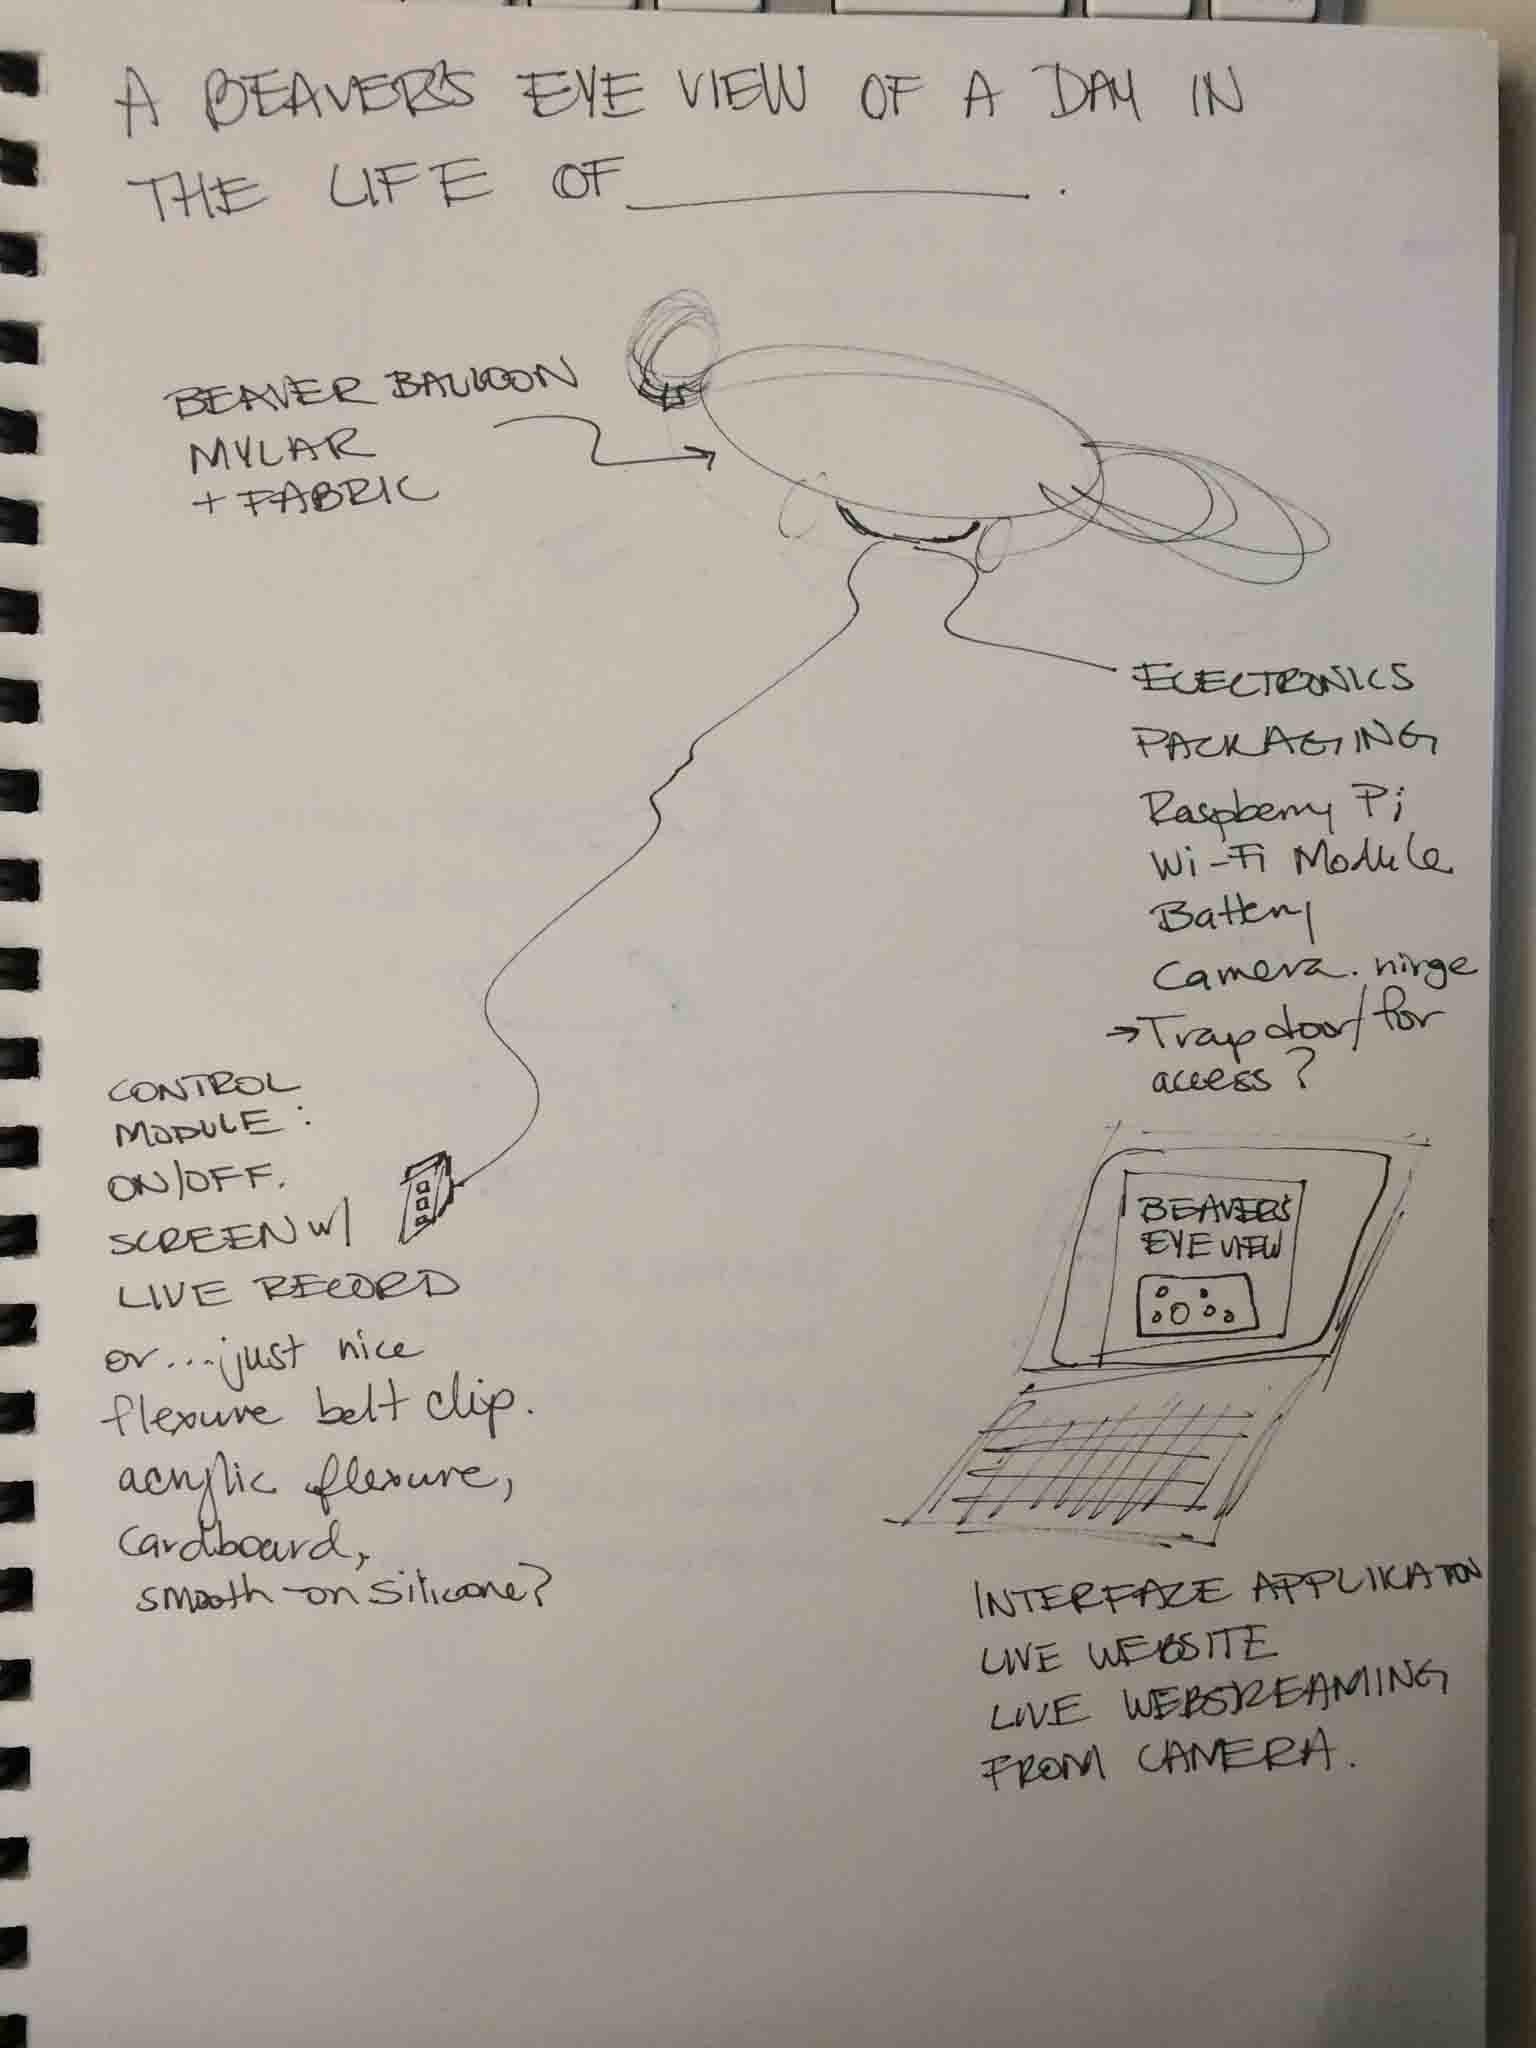 A BEAVER'S EYE VIEW OF A DAY IN
THE LIFE OF ________ .
BEAVER BALLOON
MYLAR
+ FABRIC
ELECTRONICS
PACKAGING
Raspberry Pi
Wi-Fi Module
Battery
Camera. hinge
→ Trap door/for
access?
CONTROL
MODULE:
ON/OFF.
SCREEN w/
LIVE RECORD
or...just nice
flexure belt clip.
acrylic flexure,
cardboard,
smooth-on silicone?
BEAVER'S
EYE VIEW
INTERFAZE APPLIKATON
LIVE WEBSITE
LIVE WEBSTREAMING
FROM CAMERA.